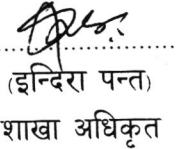 (इन्दिरा पन्त)
शाखा अधिकृत